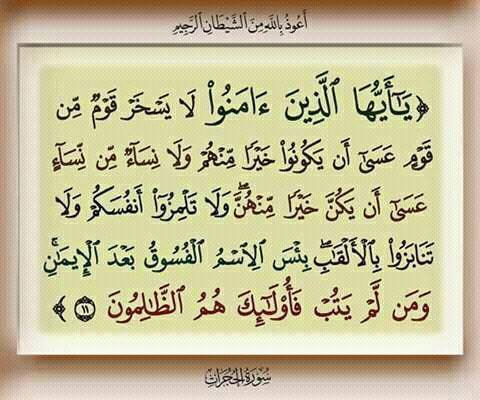 أَعُوذُ بِاللَّهِ مِنَ ٱلشَّيْطَانِ ٱلرَّجِيمِ
﴿ يَـٰٓأَيُّهَا ٱلَّذِينَ ءَامَنُوا۟ لَا يَسْخَرْ قَوْمٌ مِّن
قَوْمٍ عَسَىٰٓ أَن يَكُونُوا۟ خَيْرًا مِّنْهُمْ وَلَا نِسَآءٌ مِّن نِّسَآءٍ
عَسَىٰٓ أَن يَكُنَّ خَيْرًا مِّنْهُنَّ ۖ وَلَا تَلْمِزُوٓا۟ أَنفُسَكُمْ وَلَا
تَنَابَزُوا۟ بِٱلْأَلْقَـٰبِ ۖ بِئْسَ ٱلِٱسْمُ ٱلْفُسُوقُ بَعْدَ ٱلْإِيمَـٰنِ ۚ
وَمَن لَّمْ يَتُبْ فَأُو۟لَـٰٓئِكَ هُمُ ٱلظَّـٰلِمُونَ ١١ ﴾
سُورَةُ الْحُجُرَاتِ